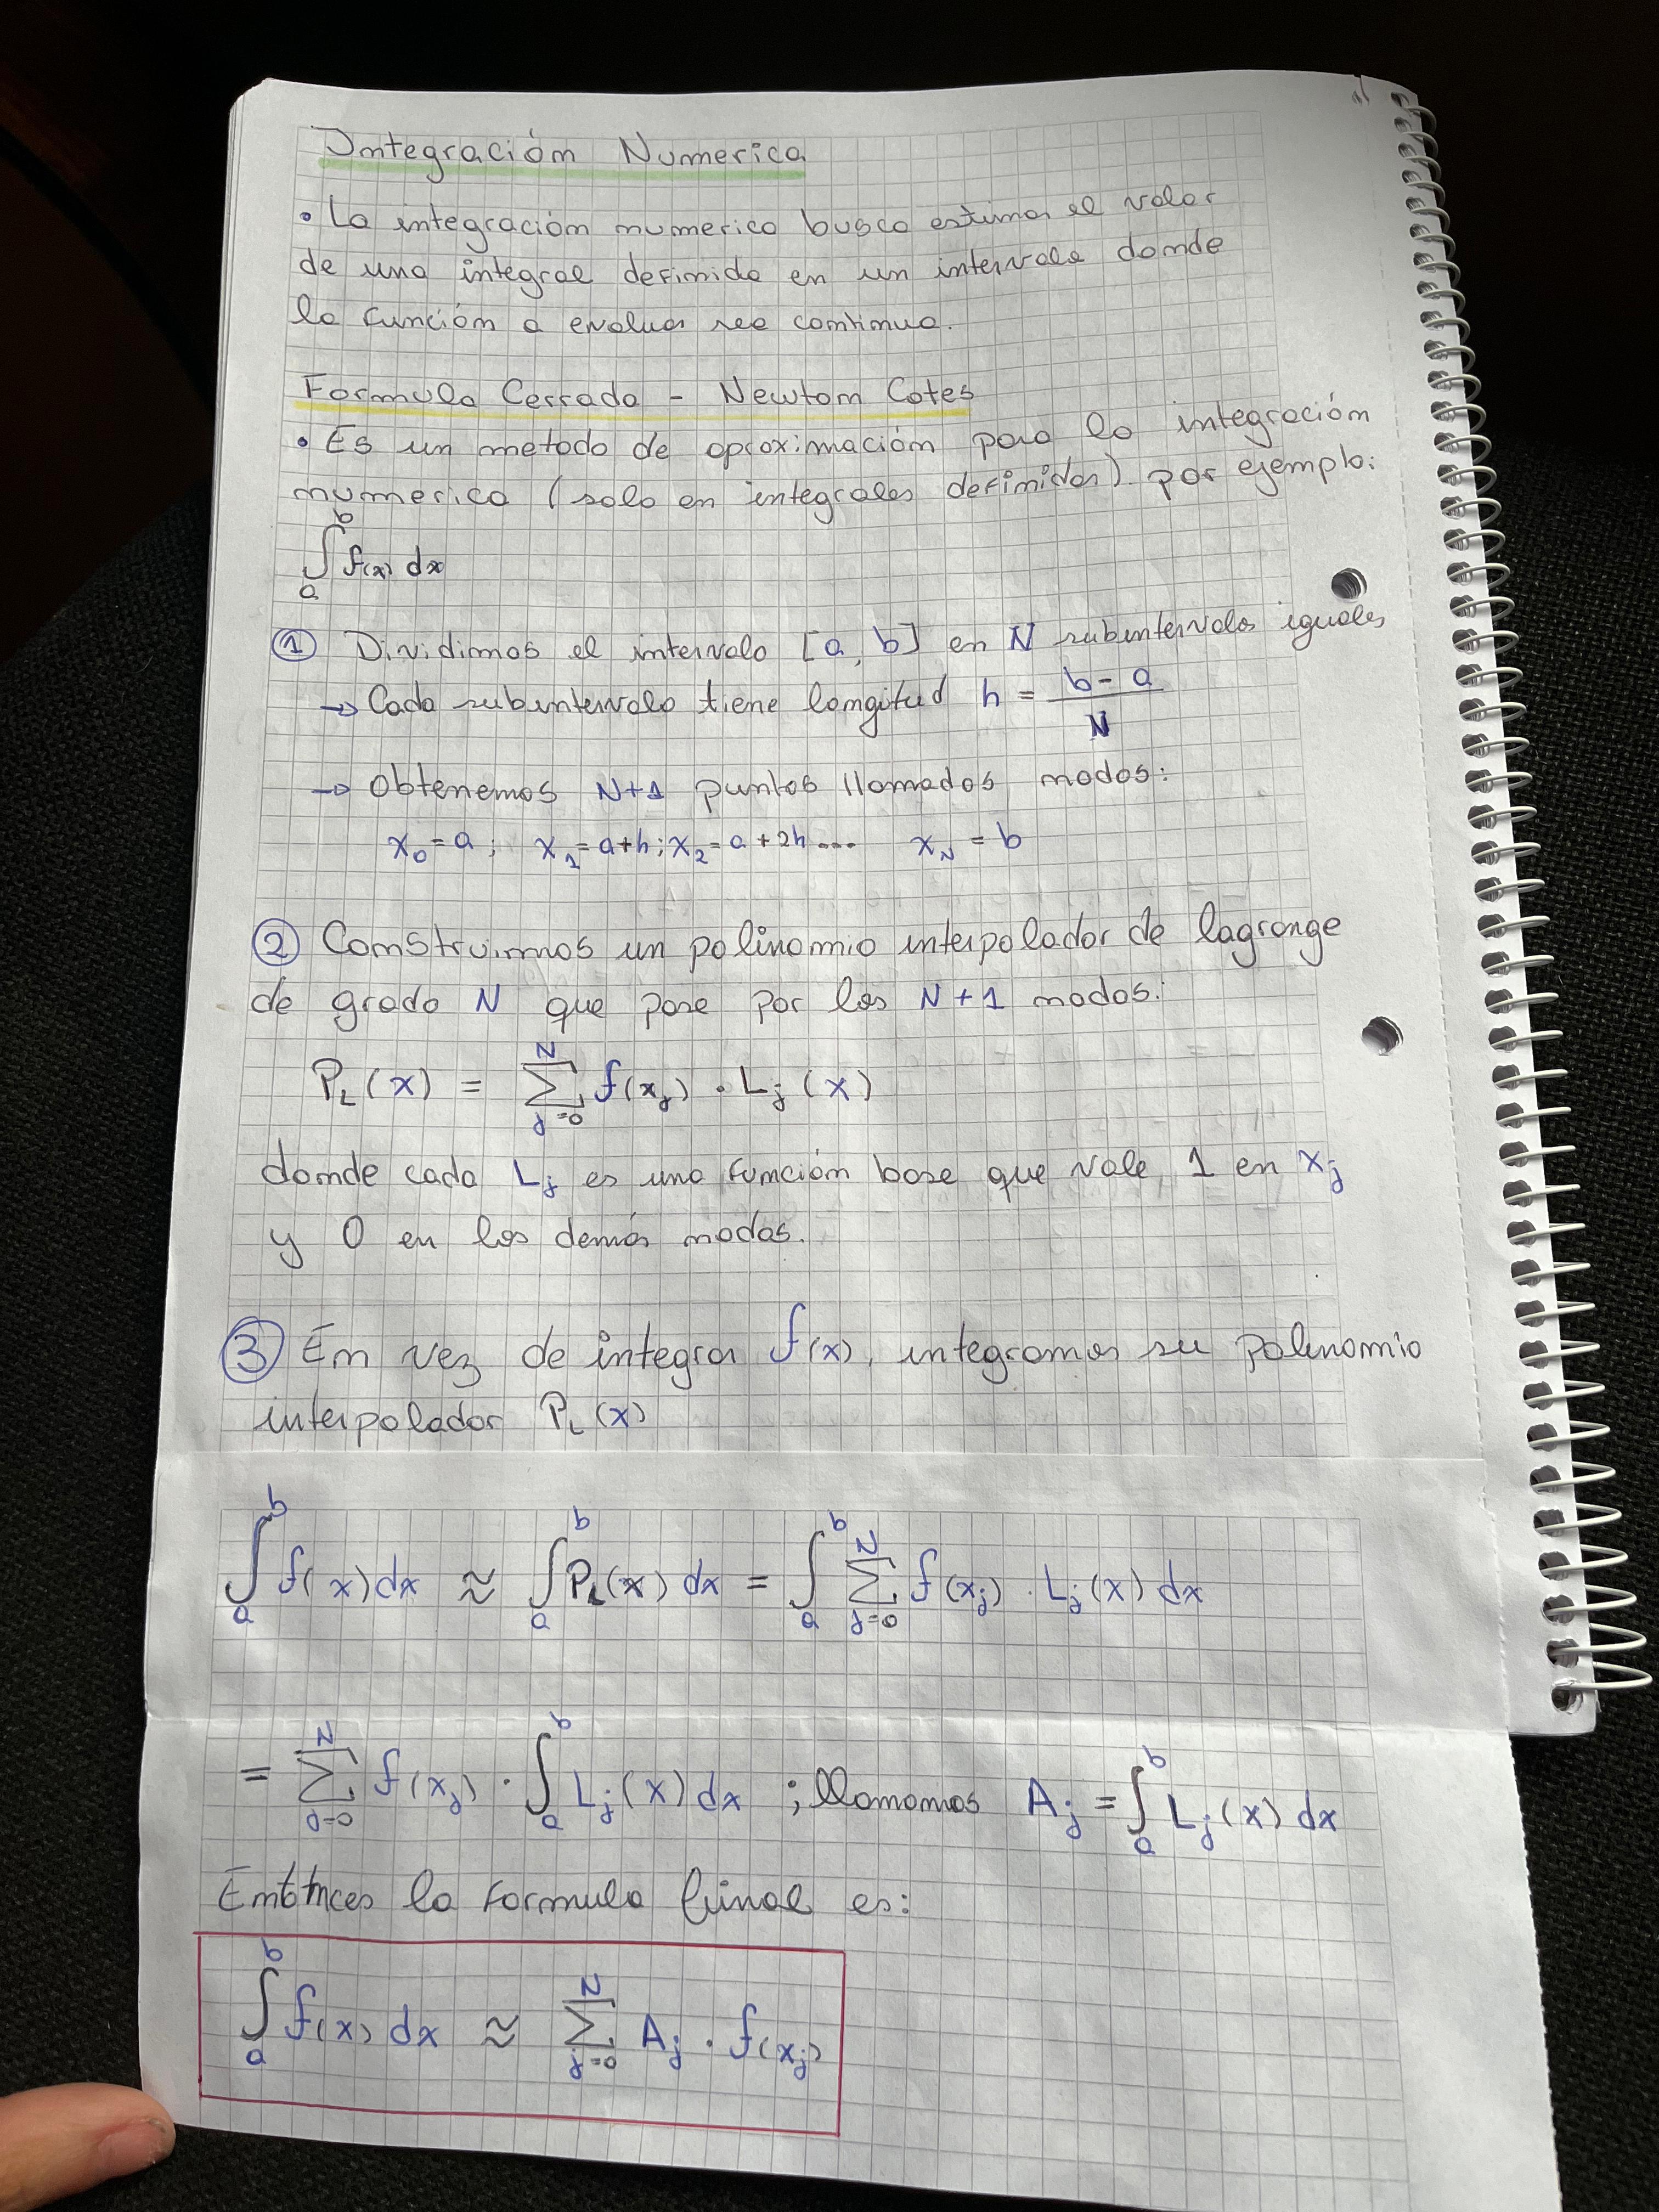 Integración Numerica
• La integración numerica busca estimar el valor
de una integral definida en un intervalo donde
la función a evaluar sea continua.
Formula Cerrada - Newton Cotes
• Es un metodo de aproximación para la integración
numerica (solo en integrales definidas). por ejemplo:
∫_a^b f(x) dx
① Dividimos el intervalo [a, b] en N subintervalos iguales
→ Cada subintervalo tiene longitud h = (b - a)/N
→ Obtenemos N+1 puntos llamados nodos:
x₀ = a; x₁ = a+h; x₂ = a + 2h .... x_N = b
② Construimos un polinomio interpolador de lagrange
de grado N que pase por los N+1 nodos:
P_L(x) = ∑_{j=0}^N f(x_j) · L_j(x)
donde cada L_j es una función base que vale 1 en x_j
y 0 en los demás nodos.
③ En vez de integrar f(x), integramos su polinomio
interpolador P_L(x)
∫_a^b f(x) dx ≈ ∫_a^b P_L(x) dx = ∫_a^b ∑_{j=0}^N f(x_j) · L_j(x) dx
= ∑_{j=0}^N f(x_j) · ∫_a^b L_j(x) dx ; llamamos A_j = ∫_a^b L_j(x) dx
Entonces la formula final es:
∫_a^b f(x) dx ≈ ∑_{j=0}^N A_j · f(x_j)